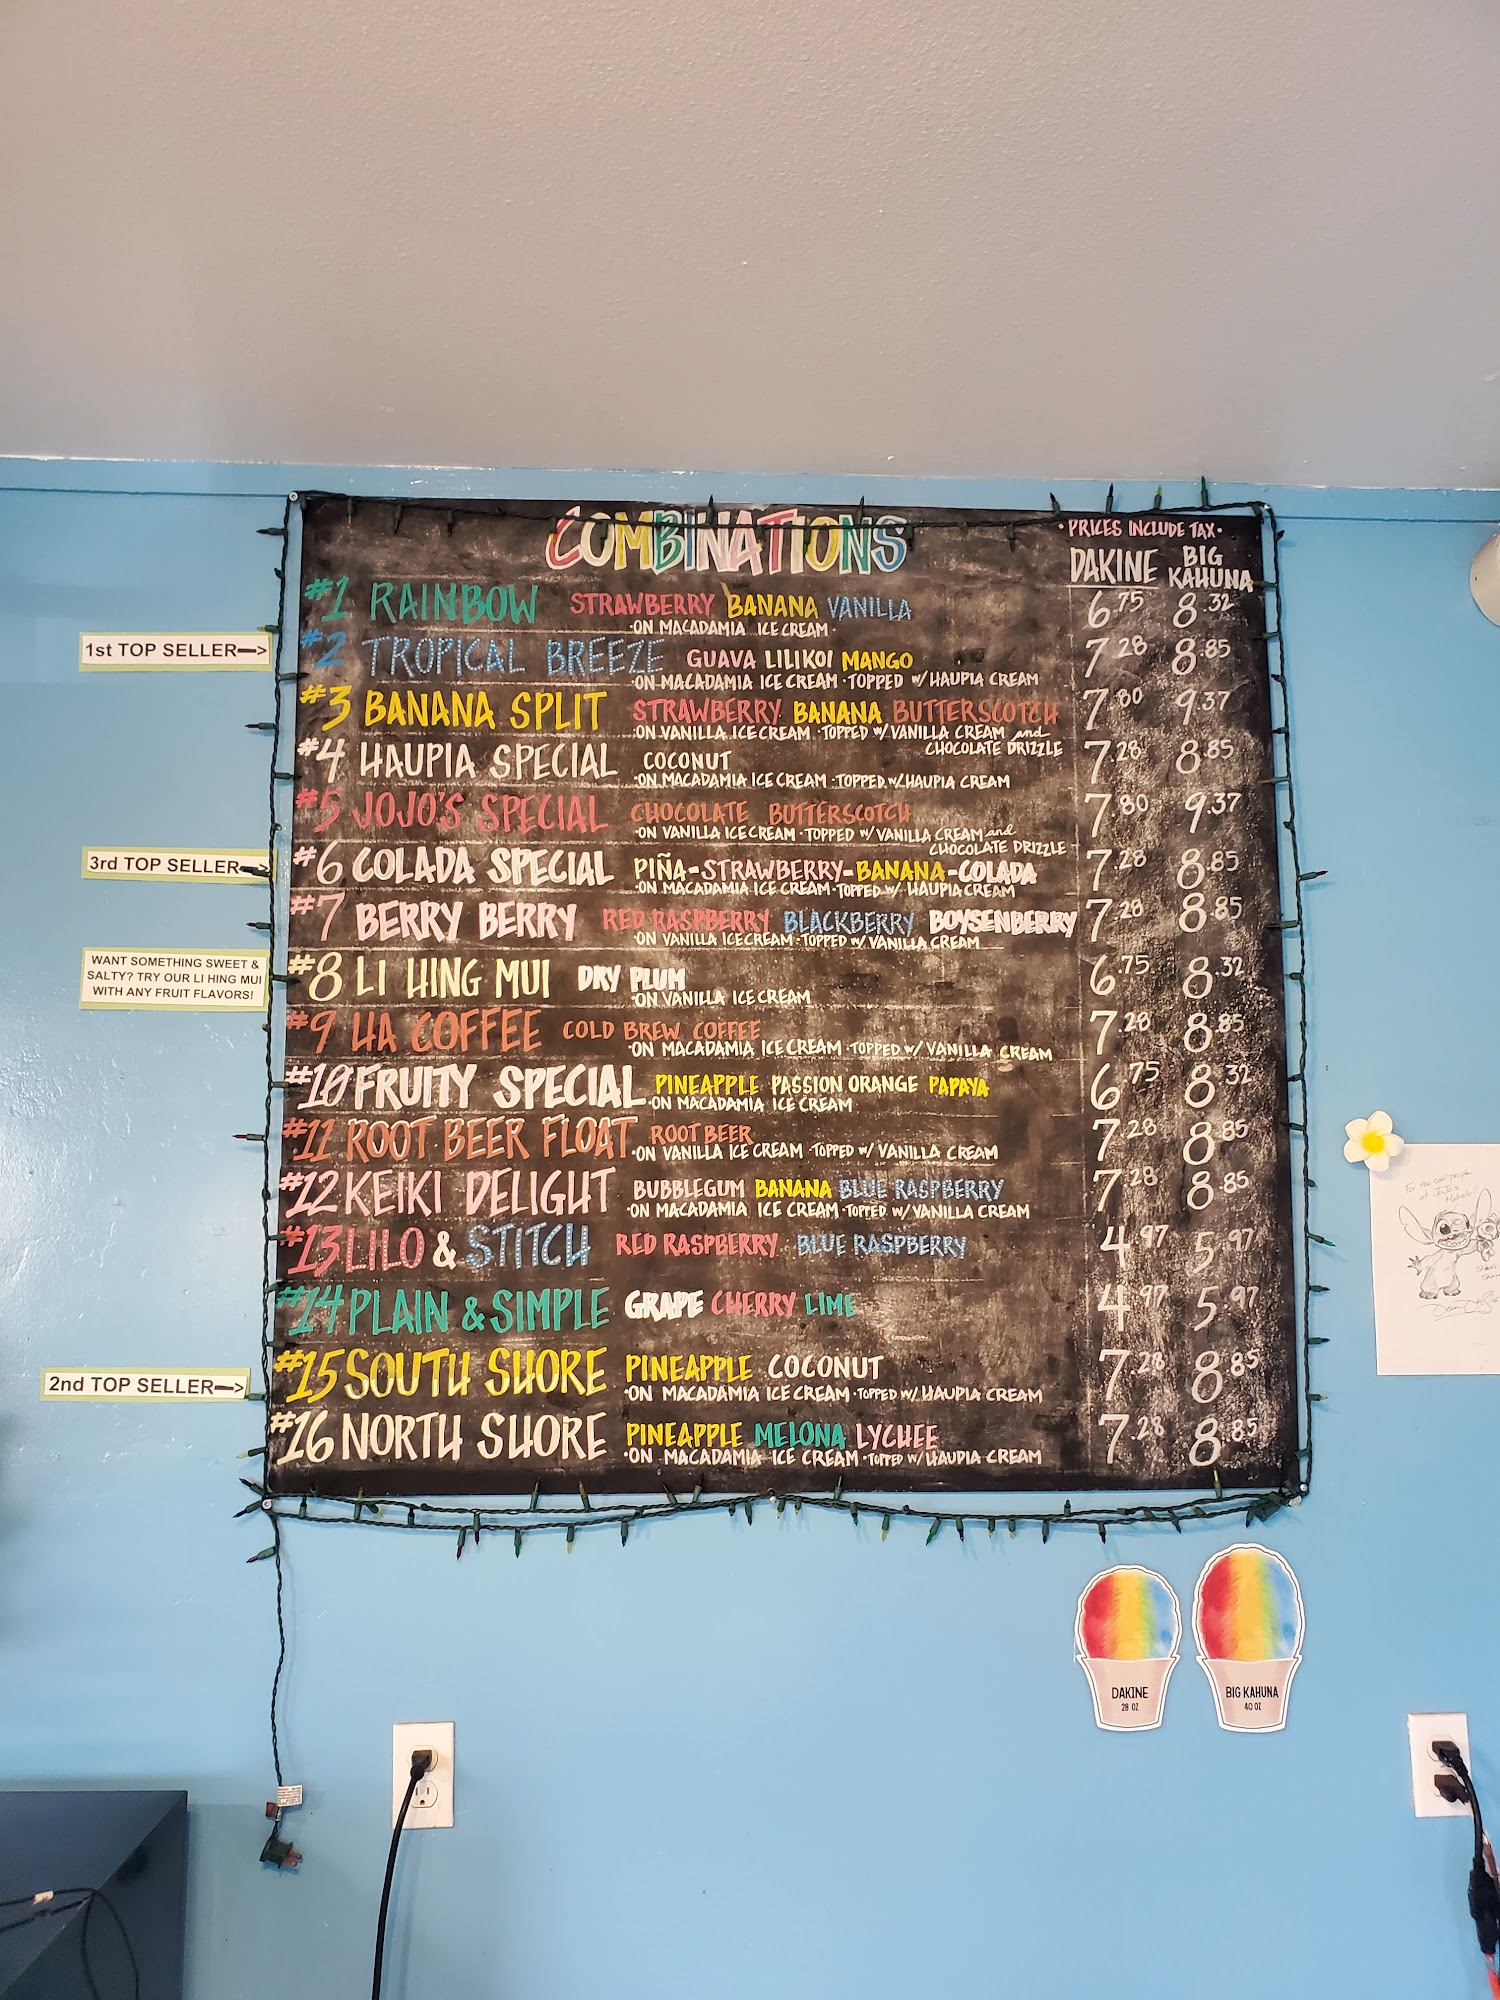 COMBINATIONS
• PRICES INCLUDE TAX •
DAKINE BIG KAHUNA
#1 RAINBOW STRAWBERRY BANANA VANILLA 6.75 8.32
•ON MACADAMIA ICE CREAM•
1st TOP SELLER—>
#2 TROPICAL BREEZE GUAVA LILIKOI MANGO 7.28 8.85
•ON MACADAMIA ICE CREAM •TOPPED w/ HAUPIA CREAM
#3 BANANA SPLIT STRAWBERRY BANANA BUTTERSCOTCH 7.80 9.37
•ON VANILLA ICE CREAM •TOPPED w/ VANILLA CREAM and
CHOCOLATE DRIZZLE
#4 HAUPIA SPECIAL COCONUT 7.28 8.85
•ON MACADAMIA ICE CREAM •TOPPED w/ HAUPIA CREAM
#5 JOJO'S SPECIAL CHOCOLATE BUTTERSCOTCH 7.80 9.37
•ON VANILLA ICE CREAM •TOPPED w/ VANILLA CREAM and
CHOCOLATE DRIZZLE
3rd TOP SELLER—>
#6 COLADA SPECIAL PIÑA-STRAWBERRY-BANANA-COLADA 7.28 8.85
•ON MACADAMIA ICE CREAM •TOPPED w/ HAUPIA CREAM
#7 BERRY BERRY RED RASPBERRY BLACKBERRY BOYSENBERRY 7.28 8.85
•ON VANILLA ICE CREAM •TOPPED w/ VANILLA CREAM
WANT SOMETHING SWEET &
SALTY? TRY OUR LI HING MUI
WITH ANY FRUIT FLAVORS!
#8 LI HING MUI DRY PLUM 6.75 8.32
•ON VANILLA ICE CREAM
#9 HA COFFEE COLD BREW COFFEE 7.28 8.85
•ON MACADAMIA ICE CREAM •TOPPED w/ VANILLA CREAM
#10 FRUITY SPECIAL PINEAPPLE PASSION ORANGE PAPAYA 6.75 8.32
•ON MACADAMIA ICE CREAM
#11 ROOT BEER FLOAT ROOT BEER 7.28 8.85
•ON VANILLA ICE CREAM •TOPPED w/ VANILLA CREAM
#12 KEIKI DELIGHT BUBBLEGUM BANANA BLUE RASPBERRY 7.28 8.85
•ON MACADAMIA ICE CREAM •TOPPED w/ VANILLA CREAM
#13 LILO & STITCH RED RASPBERRY BLUE RASPBERRY 4.97 5.97
#14 PLAIN & SIMPLE GRAPE CHERRY LIME 4.97 5.97
2nd TOP SELLER—>
#15 SOUTH SHORE PINEAPPLE COCONUT 7.28 8.85
•ON MACADAMIA ICE CREAM •TOPPED w/ HAUPIA CREAM
#16 NORTH SHORE PINEAPPLE MELONA LYCHEE 7.28 8.85
•ON MACADAMIA ICE CREAM •TOPPED w/ HAUPIA CREAM
For the cool people
at JOJO'S
Mahalo!
DAKINE
28 OZ
BIG KAHUNA
40 OZ